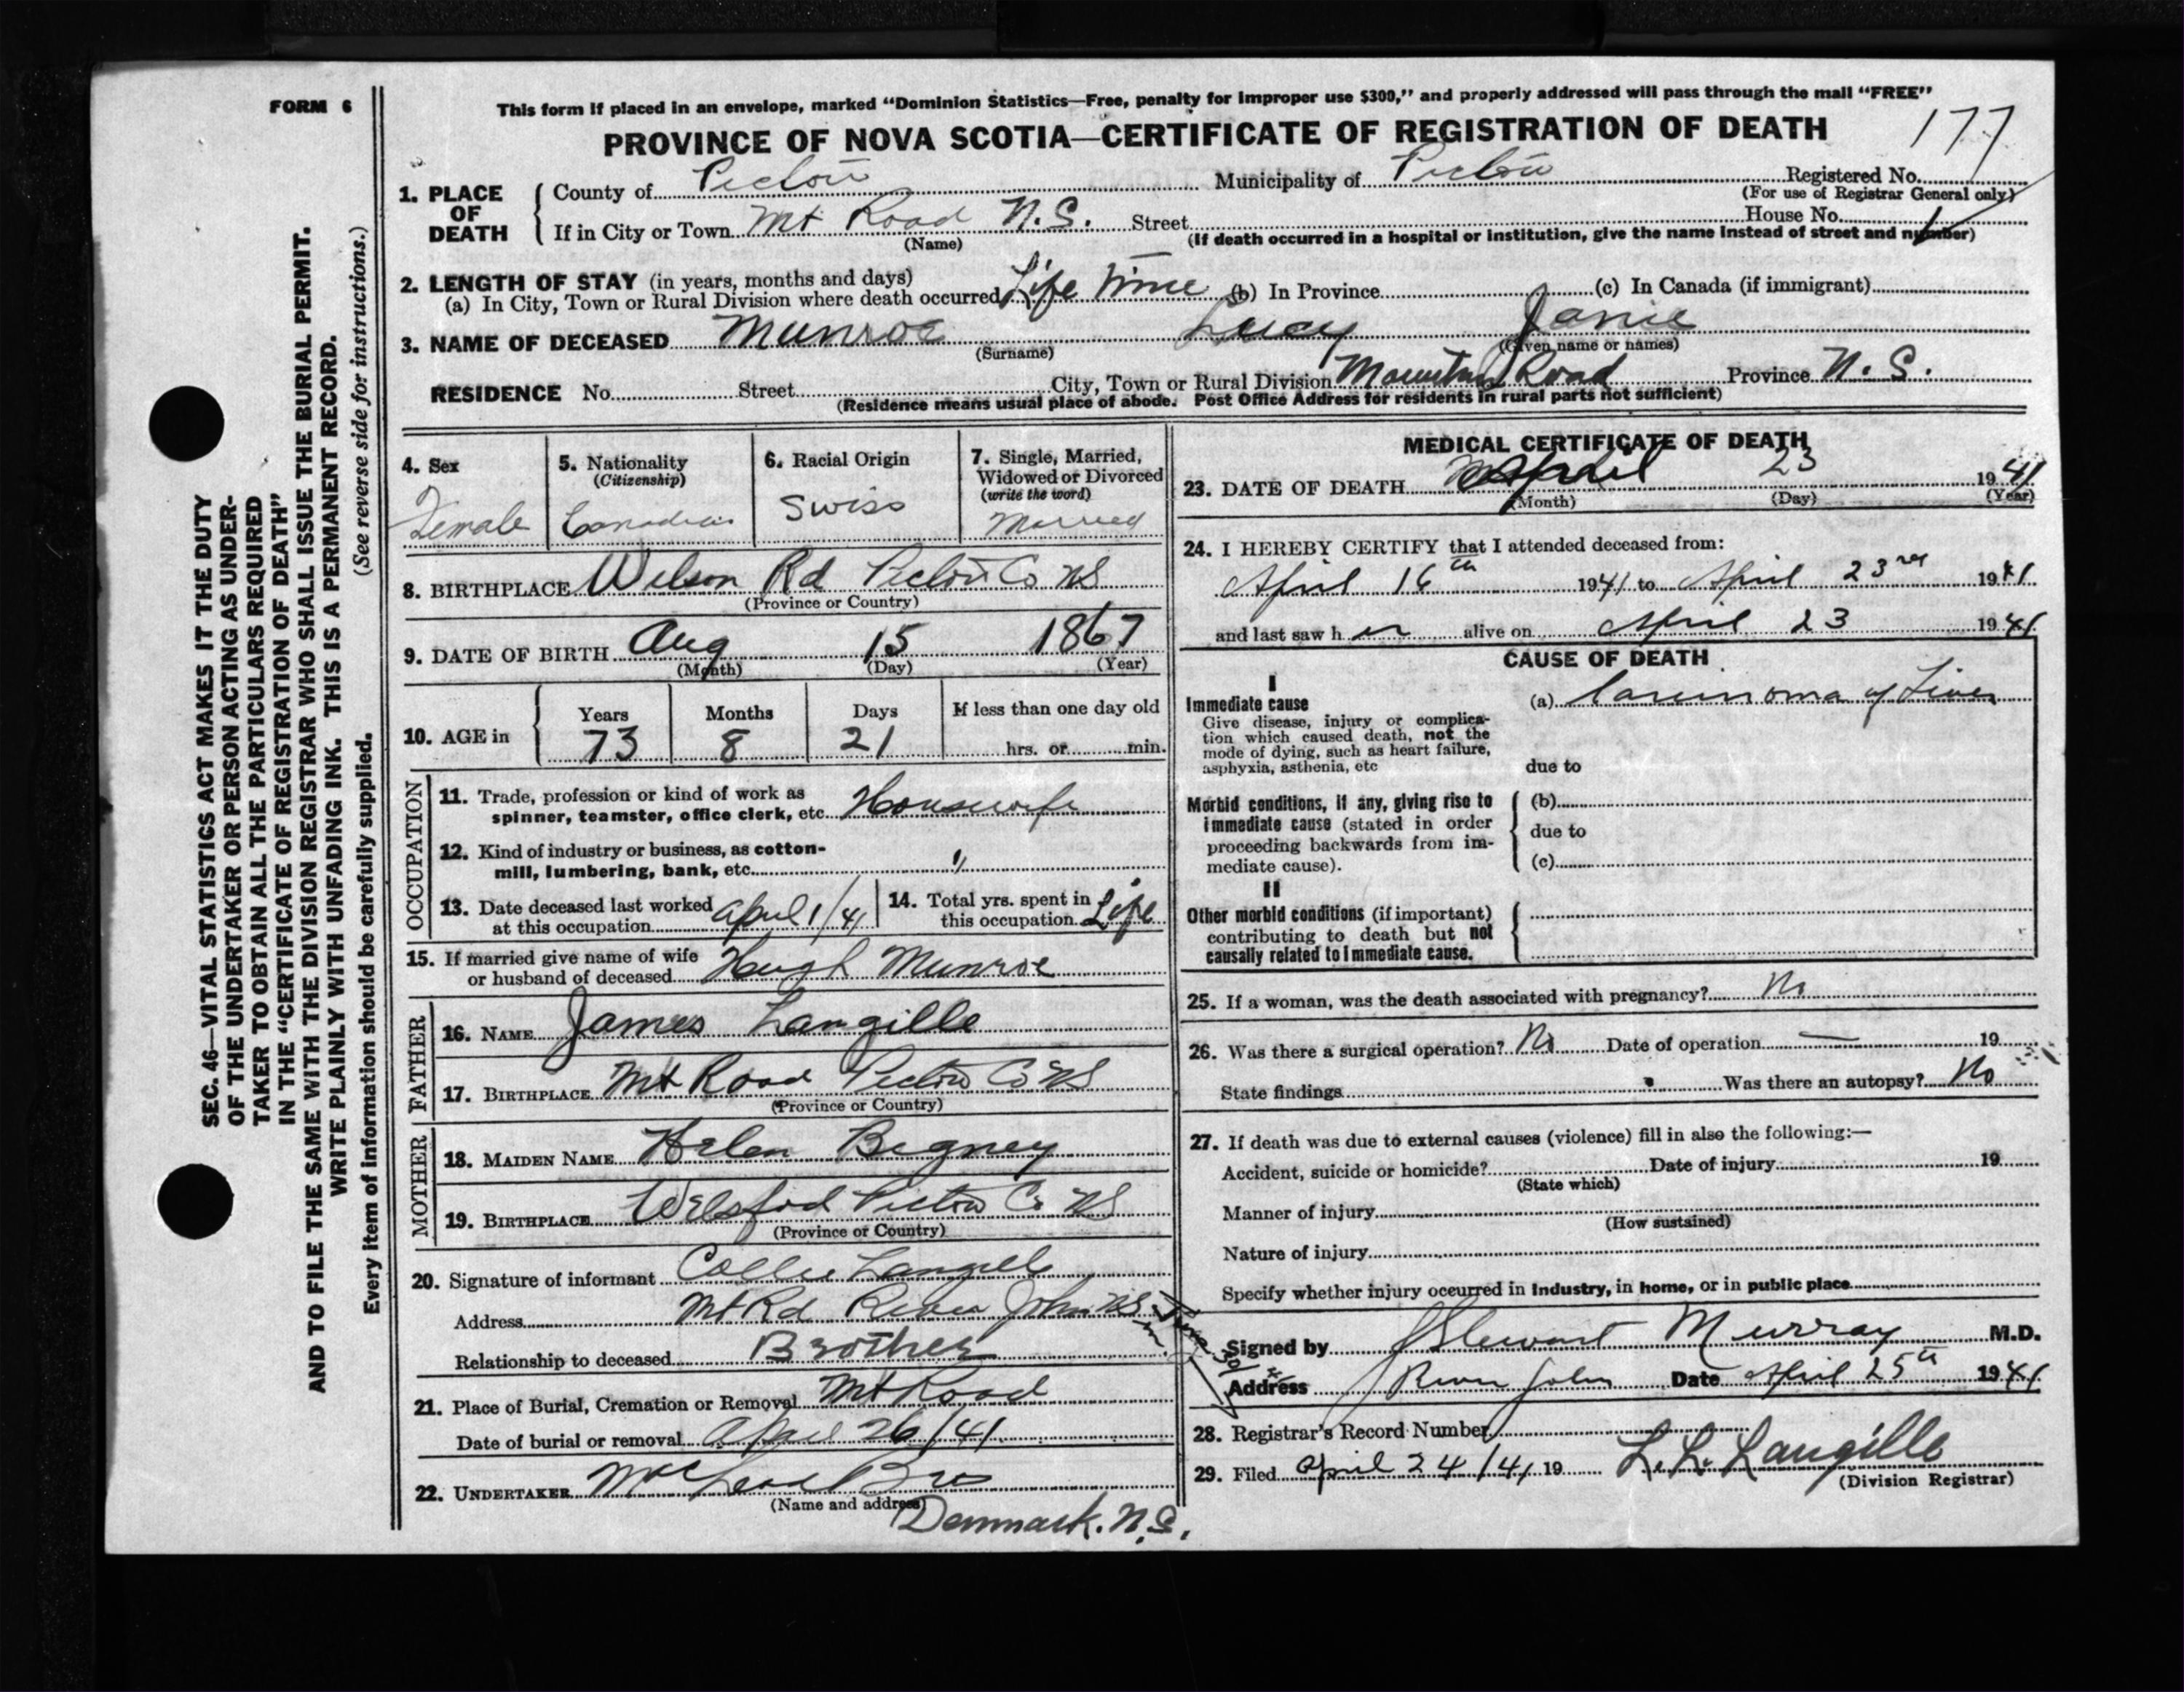 FORM 6
This form if placed in an envelope, marked “Dominion Statistics—Free, penalty for improper use $300,” and properly addressed will pass through the mail “FREE”
PROVINCE OF NOVA SCOTIA—CERTIFICATE OF REGISTRATION OF DEATH
177
1. PLACE OF DEATH
County of Pictou Municipality of Pictou Registered No.
(For use of Registrar General only)
If in City or Town Mt Road N.S. Street House No.
(Name) (If death occurred in a hospital or institution, give the name instead of street and number)
2. LENGTH OF STAY (in years, months and days)
(a) In City, Town or Rural Division where death occurred Life Time (b) In Province (c) In Canada (if immigrant)
3. NAME OF DECEASED Munroe Lucy Janie
(Surname) (Given name or names)
RESIDENCE No. Street City, Town or Rural Division Mountain Road Province N.S.
(Residence means usual place of abode. Post Office Address for residents in rural parts not sufficient)
4. Sex
Female
5. Nationality
(Citizenship)
Canadian
6. Racial Origin
Swiss
7. Single, Married,
Widowed or Divorced
(write the word)
Married
8. BIRTHPLACE Wilson Rd Pictou Co NS
(Province or Country)
9. DATE OF BIRTH Aug 15 1867
(Month) (Day) (Year)
10. AGE in
Years Months Days If less than one day old
73 8 21 hrs. or min.
OCCUPATION
11. Trade, profession or kind of work as
spinner, teamster, office clerk, etc. Housewife
12. Kind of industry or business, as cotton-
mill, lumbering, bank, etc. "
13. Date deceased last worked
at this occupation April 1/41
14. Total yrs. spent in
this occupation Life
15. If married give name of wife
or husband of deceased Hugh Munroe
FATHER
16. NAME James Langille
17. BIRTHPLACE Mt Road Pictou Co NS
(Province or Country)
MOTHER
18. MAIDEN NAME Helen Bigney
19. BIRTHPLACE Welsford Pictou Co NS
(Province or Country)
20. Signature of informant Collie Langille
Address Mt Rd River John NS
Relationship to deceased Brother
21. Place of Burial, Cremation or Removal Mt Road
Date of burial or removal April 26/41
22. UNDERTAKER MacLeod Bros
(Name and address)
Denmark. N.S.
MEDICAL CERTIFICATE OF DEATH
23. DATE OF DEATH April 23 1941
(Month) (Day) (Year)
24. I HEREBY CERTIFY that I attended deceased from:
April 16th 1941 to April 23rd 1941
and last saw her alive on April 23 1941
CAUSE OF DEATH
I
Immediate cause
(a) Carcinoma of Liver
Give disease, injury or complica-
tion which caused death, not the
mode of dying, such as heart failure,
asphyxia, asthenia, etc
due to
Morbid conditions, if any, giving rise to
immediate cause (stated in order
proceeding backwards from im-
mediate cause).
(b)
due to
(c)
II
Other morbid conditions (if important)
contributing to death but not
causally related to immediate cause.
25. If a woman, was the death associated with pregnancy? No
26. Was there a surgical operation? No Date of operation — 19
State findings Was there an autopsy? No
27. If death was due to external causes (violence) fill in also the following:—
Accident, suicide or homicide? Date of injury 19
(State which)
Manner of injury
(How sustained)
Nature of injury
Specify whether injury occurred in industry, in home, or in public place
Signed by J Stewart Murray M.D.
Address River John Date April 25th 1941
28. Registrar's Record Number
29. Filed April 24/41 19 L. L. Langille
(Division Registrar)
SEC. 46—VITAL STATISTICS ACT MAKES IT THE DUTY
OF THE UNDERTAKER OR PERSON ACTING AS UNDER-
TAKER TO OBTAIN ALL THE PARTICULARS REQUIRED
IN THE “CERTIFICATE OF REGISTRATION OF DEATH”
AND TO FILE THE SAME WITH THE DIVISION REGISTRAR WHO SHALL ISSUE THE BURIAL PERMIT.
WRITE PLAINLY WITH UNFADING INK. THIS IS A PERMANENT RECORD.
(See reverse side for instructions.)
Every item of information should be carefully supplied.